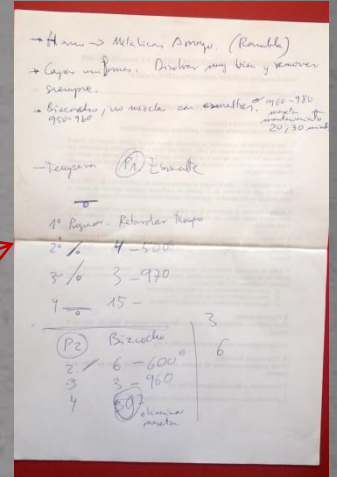 → Horno → Metalicas Arroyo. (Rambla)
→ Capas uniformes. Disolver muy bien y remover
siempre.
→ Bizcocho, no mezclar con esmaltes.
950-960
960-980
meseta
mantenimiento
20, 30 minut
- Temperatura (P1) Esmalte
1º Programa - Retardar tiempo
2º / 4 - 500
3º / 3 - 970
4 15 -
(P2) Bizcocho
2 / 6 - 600º
3 3 - 960
4 30'
eliminar
meseta
3
6